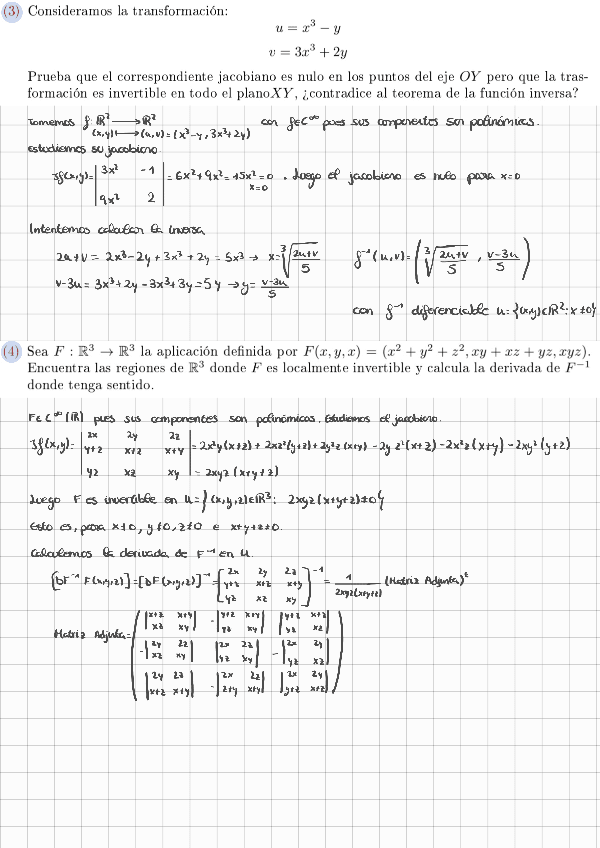 (3) Consideramos la transformación:
u = x³ − y
v = 3x³ + 2y
Prueba que el correspondiente jacobiano es nulo en los puntos del eje OY pero que la tras-
formación es invertible en todo el planoXY, ¿contradice al teorema de la función inversa?
Tomemos f: ℝ² ⟶ ℝ² con f∈C^∞ pues sus componentes son polinómicas.
(x,y) ⟼ (u,v) = (x³-y, 3x³+2y)
estudiemos su jacobiano.
Jf(x,y) = | 3x² -1 | = 6x² + 9x² = 15x² = 0 . Luego el jacobiano es nulo para x=0
x=0
| 9x² 2 |
Intentemos calcular la inversa
2u+v = 2x³ - 2y + 3x³ + 2y = 5x³ → x = ∛((2u+v)/5) f⁻¹(u,v) = ( ∛((2u+v)/5) , (v-3u)/5 )
v-3u = 3x³ + 2y - 3x³ + 3y = 5y → y = (v-3u)/5
con f⁻¹ diferenciable u = {(x,y)∈ℝ²: x≠0}
(4) Sea F : ℝ³ → ℝ³ la aplicación definida por F(x, y, x) = (x² + y² + z², xy + xz + yz, xyz).
Encuentra las regiones de ℝ³ donde F es localmente invertible y calcula la derivada de F⁻¹
donde tenga sentido.
F∈C^∞(ℝ) pues sus componentes son polinómicas. Estudiemos el jacobiano.
Jf(x,y) = | 2x 2y 2z |
| y+z x+z x+y | = 2x²y(x+z) + 2xz²(y+z) + 2y²z(x+y) - 2yz²(x+z) - 2x²z(x+y) - 2xy²(y+z)
| yz xz xy | = 2xyz(x+y+z)
Luego F es invertible en u = {(x,y,z)∈ℝ³: 2xyz(x+y+z)≠0}
Esto es, para x≠0, y≠0, z≠0 e x+y+z≠0.
Calculemos la derivada de F⁻¹ en u.
[DF⁻¹ F(x,y,z)] = [DF(x,y,z)]⁻¹ = [ 2x 2y 2z ; y+z x+z x+y ; yz xz xy ]⁻¹ = 1/(2xyz(x+y+z)) (Matriz Adjunta)ᵗ
Matriz Adjunta = ( |x+z x+y ; xz xy| -|y+z x+y ; yz xy| |y+z x+z ; yz xz|
-|2y 2z ; xz xy| |2x 2z ; yz xy| -|2x 2y ; yz xz|
|2y 2z ; x+z x+y| -|2x 2z ; z+y x+y| |2x 2y ; y+z x+z| )